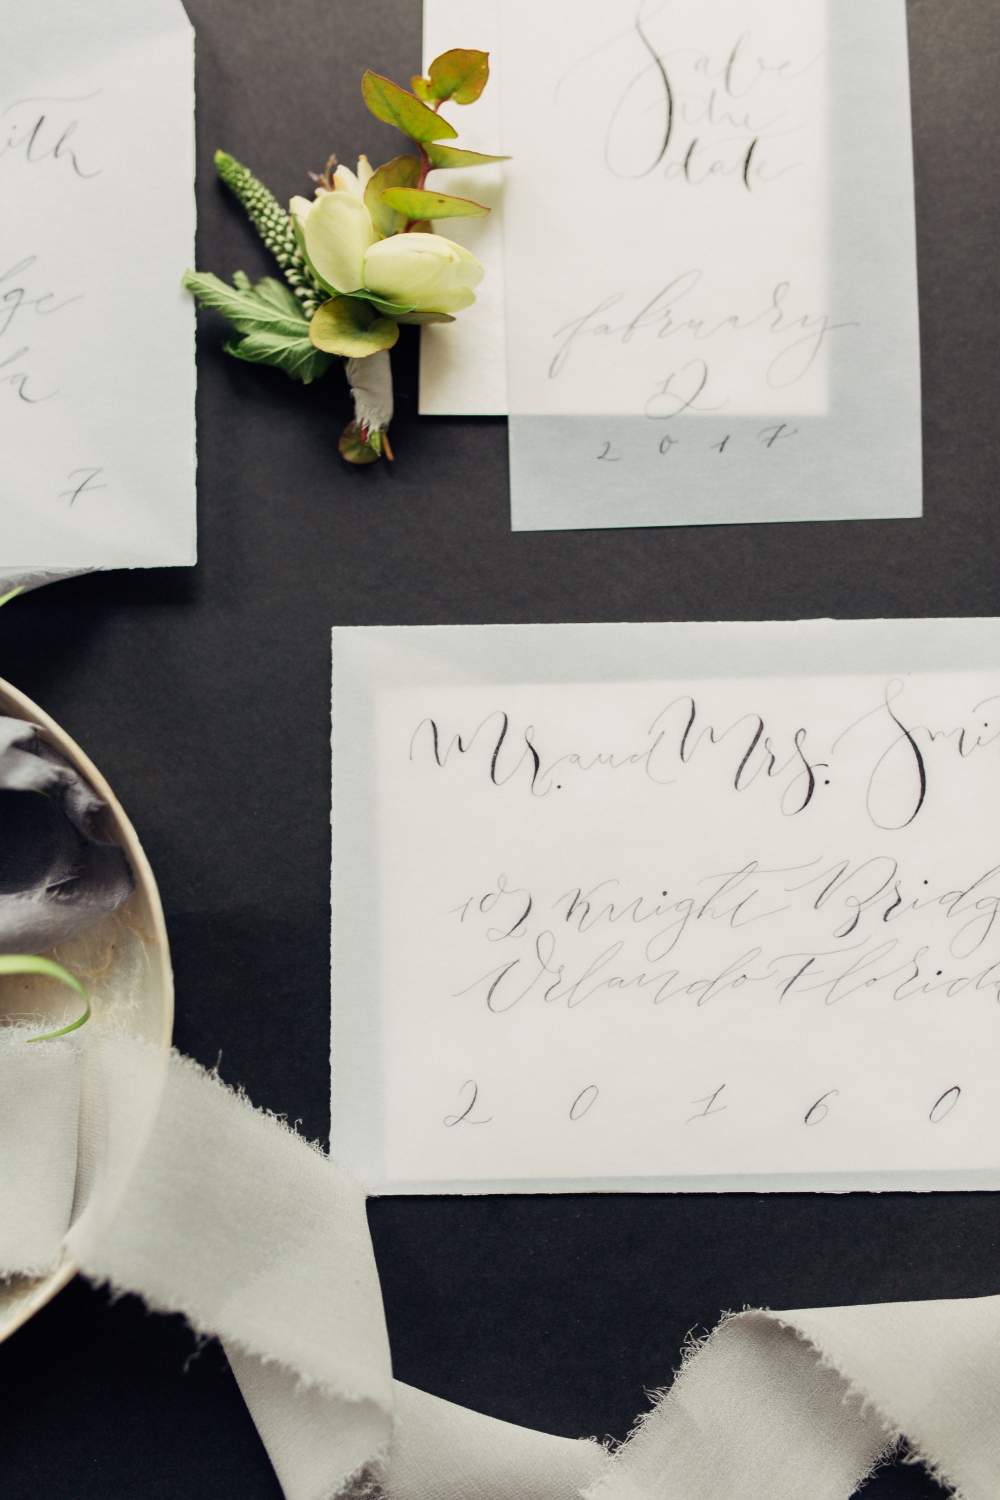 ith
ge
a
7
Save
the
date
february
12
2017
Mr. and Mrs. Smi
102 Knight Bridg
Orlando Florid
2 0 1 6 0